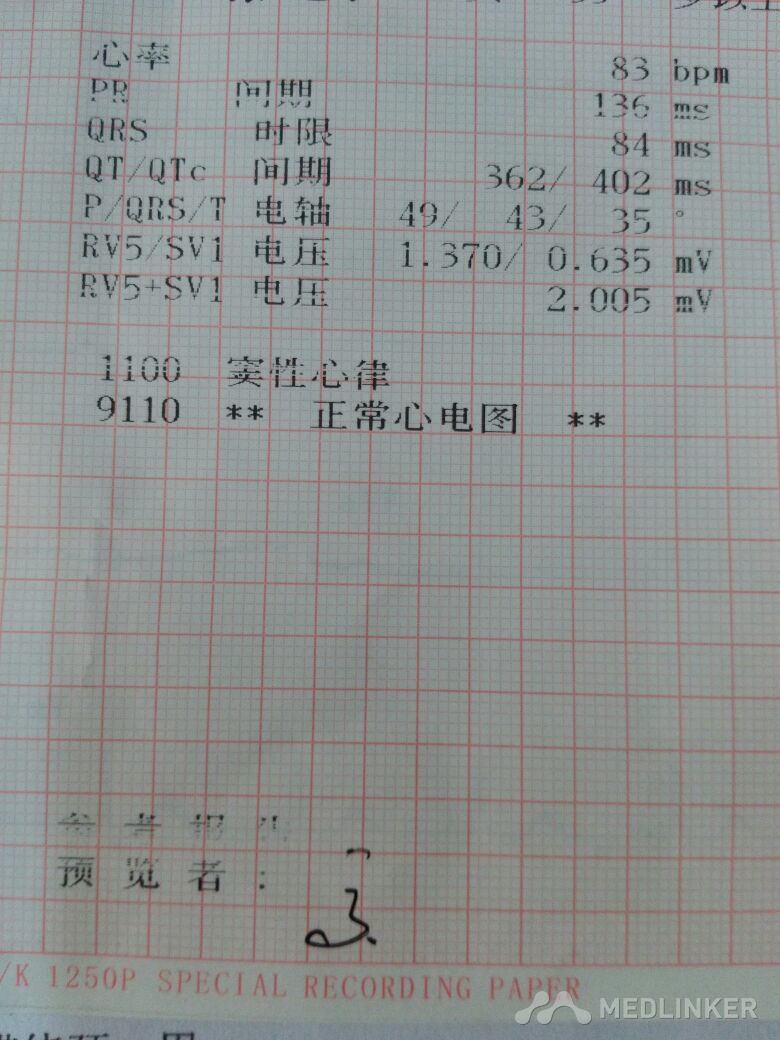 心率 83 bpm
PR 间期 136 ms
QRS 时限 84 ms
QT/QTc 间期 362/ 402 ms
P/QRS/T 电轴 49/ 43/ 35 °
RV5/SV1 电压 1.370/ 0.635 mV
RV5+SV1 电压 2.005 mV
1100 窦性心律
9110 ** 正常心电图 **
参考报告
预览者:
/K 1250P SPECIAL RECORDING PAPER
MEDLINKER